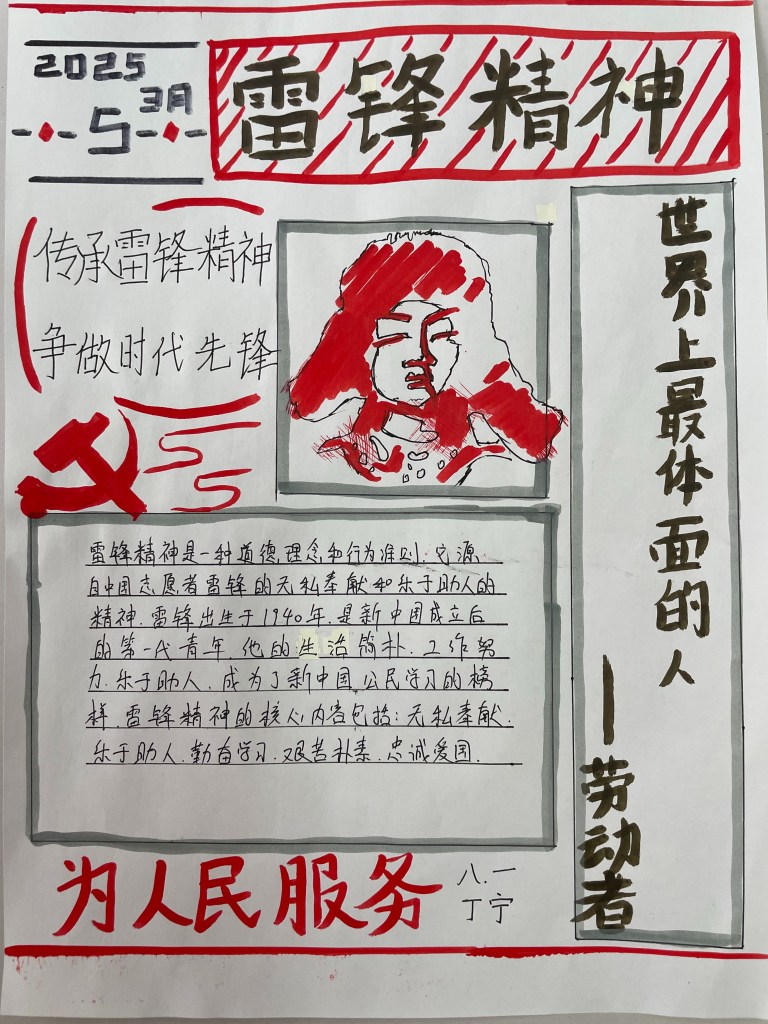 2025
3月
5
雷锋精神
传承雷锋精神
争做时代先锋
世界上最体面的人
——劳动者
雷锋精神是一种道德理念和行为准则.它源
自中国志愿者雷锋的无私奉献和乐于助人的
精神.雷锋出生于1940年.是新中国成立后
的第一代青年.他的生活简朴.工作努
力.乐于助人.成为了新中国公民学习的榜
样.雷锋精神的核心内容包括:无私奉献.
乐于助人.勤奋学习.艰苦朴素.忠诚爱国.
为人民服务
八.一
丁宁